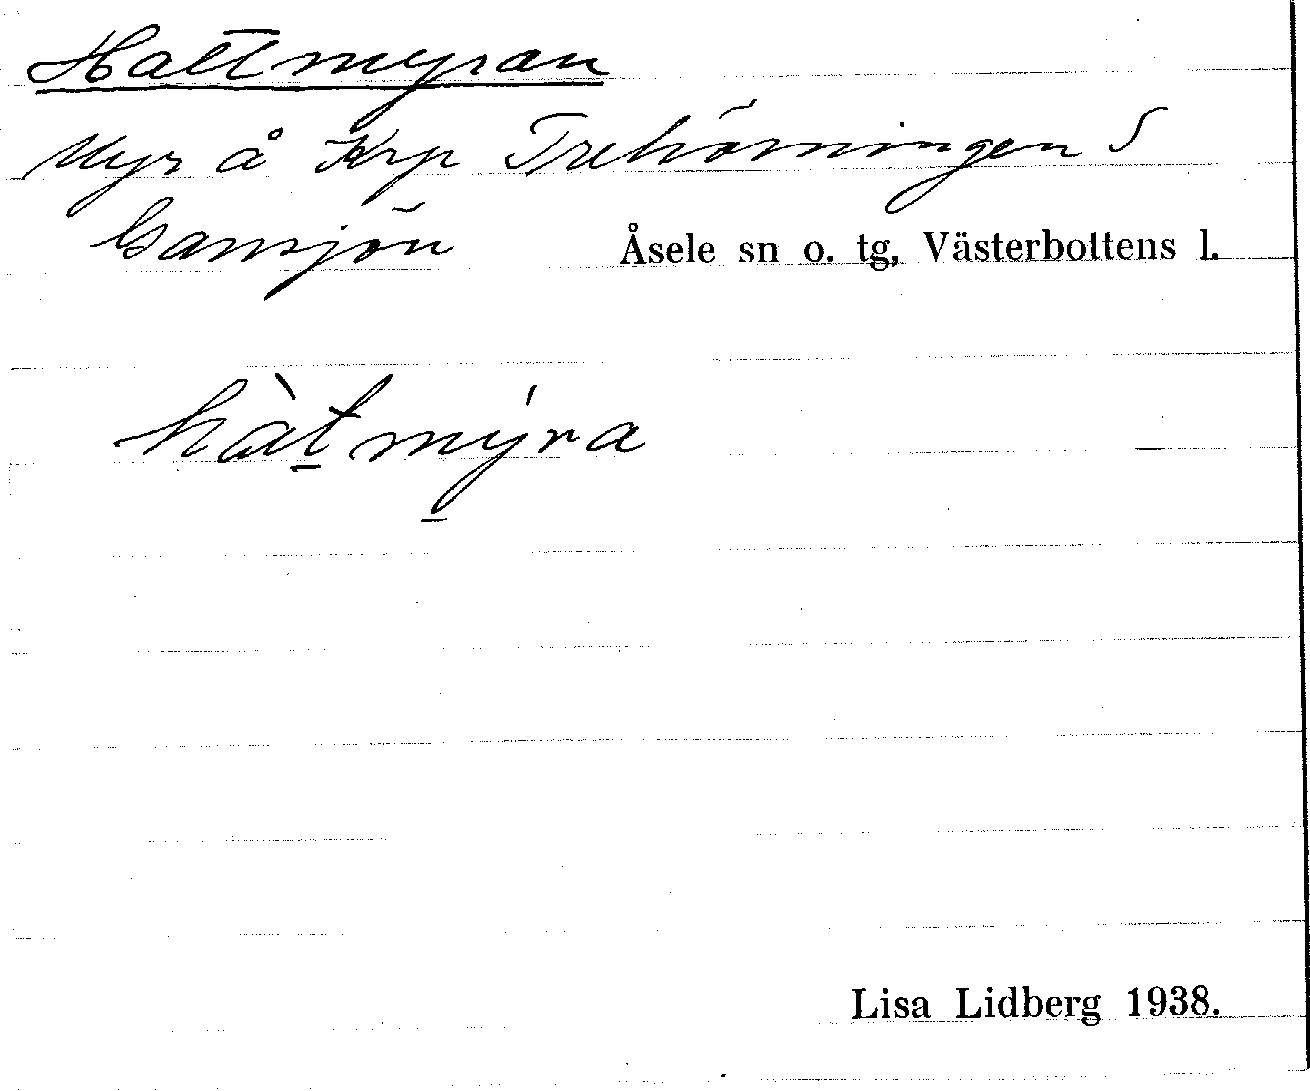 Hattmyran
Myr å Krp Trehörningen S
Gamsjön Åsele sn o. tg, Västerbottens l.
hàt̲mý̲ra
Lisa Lidberg 1938.